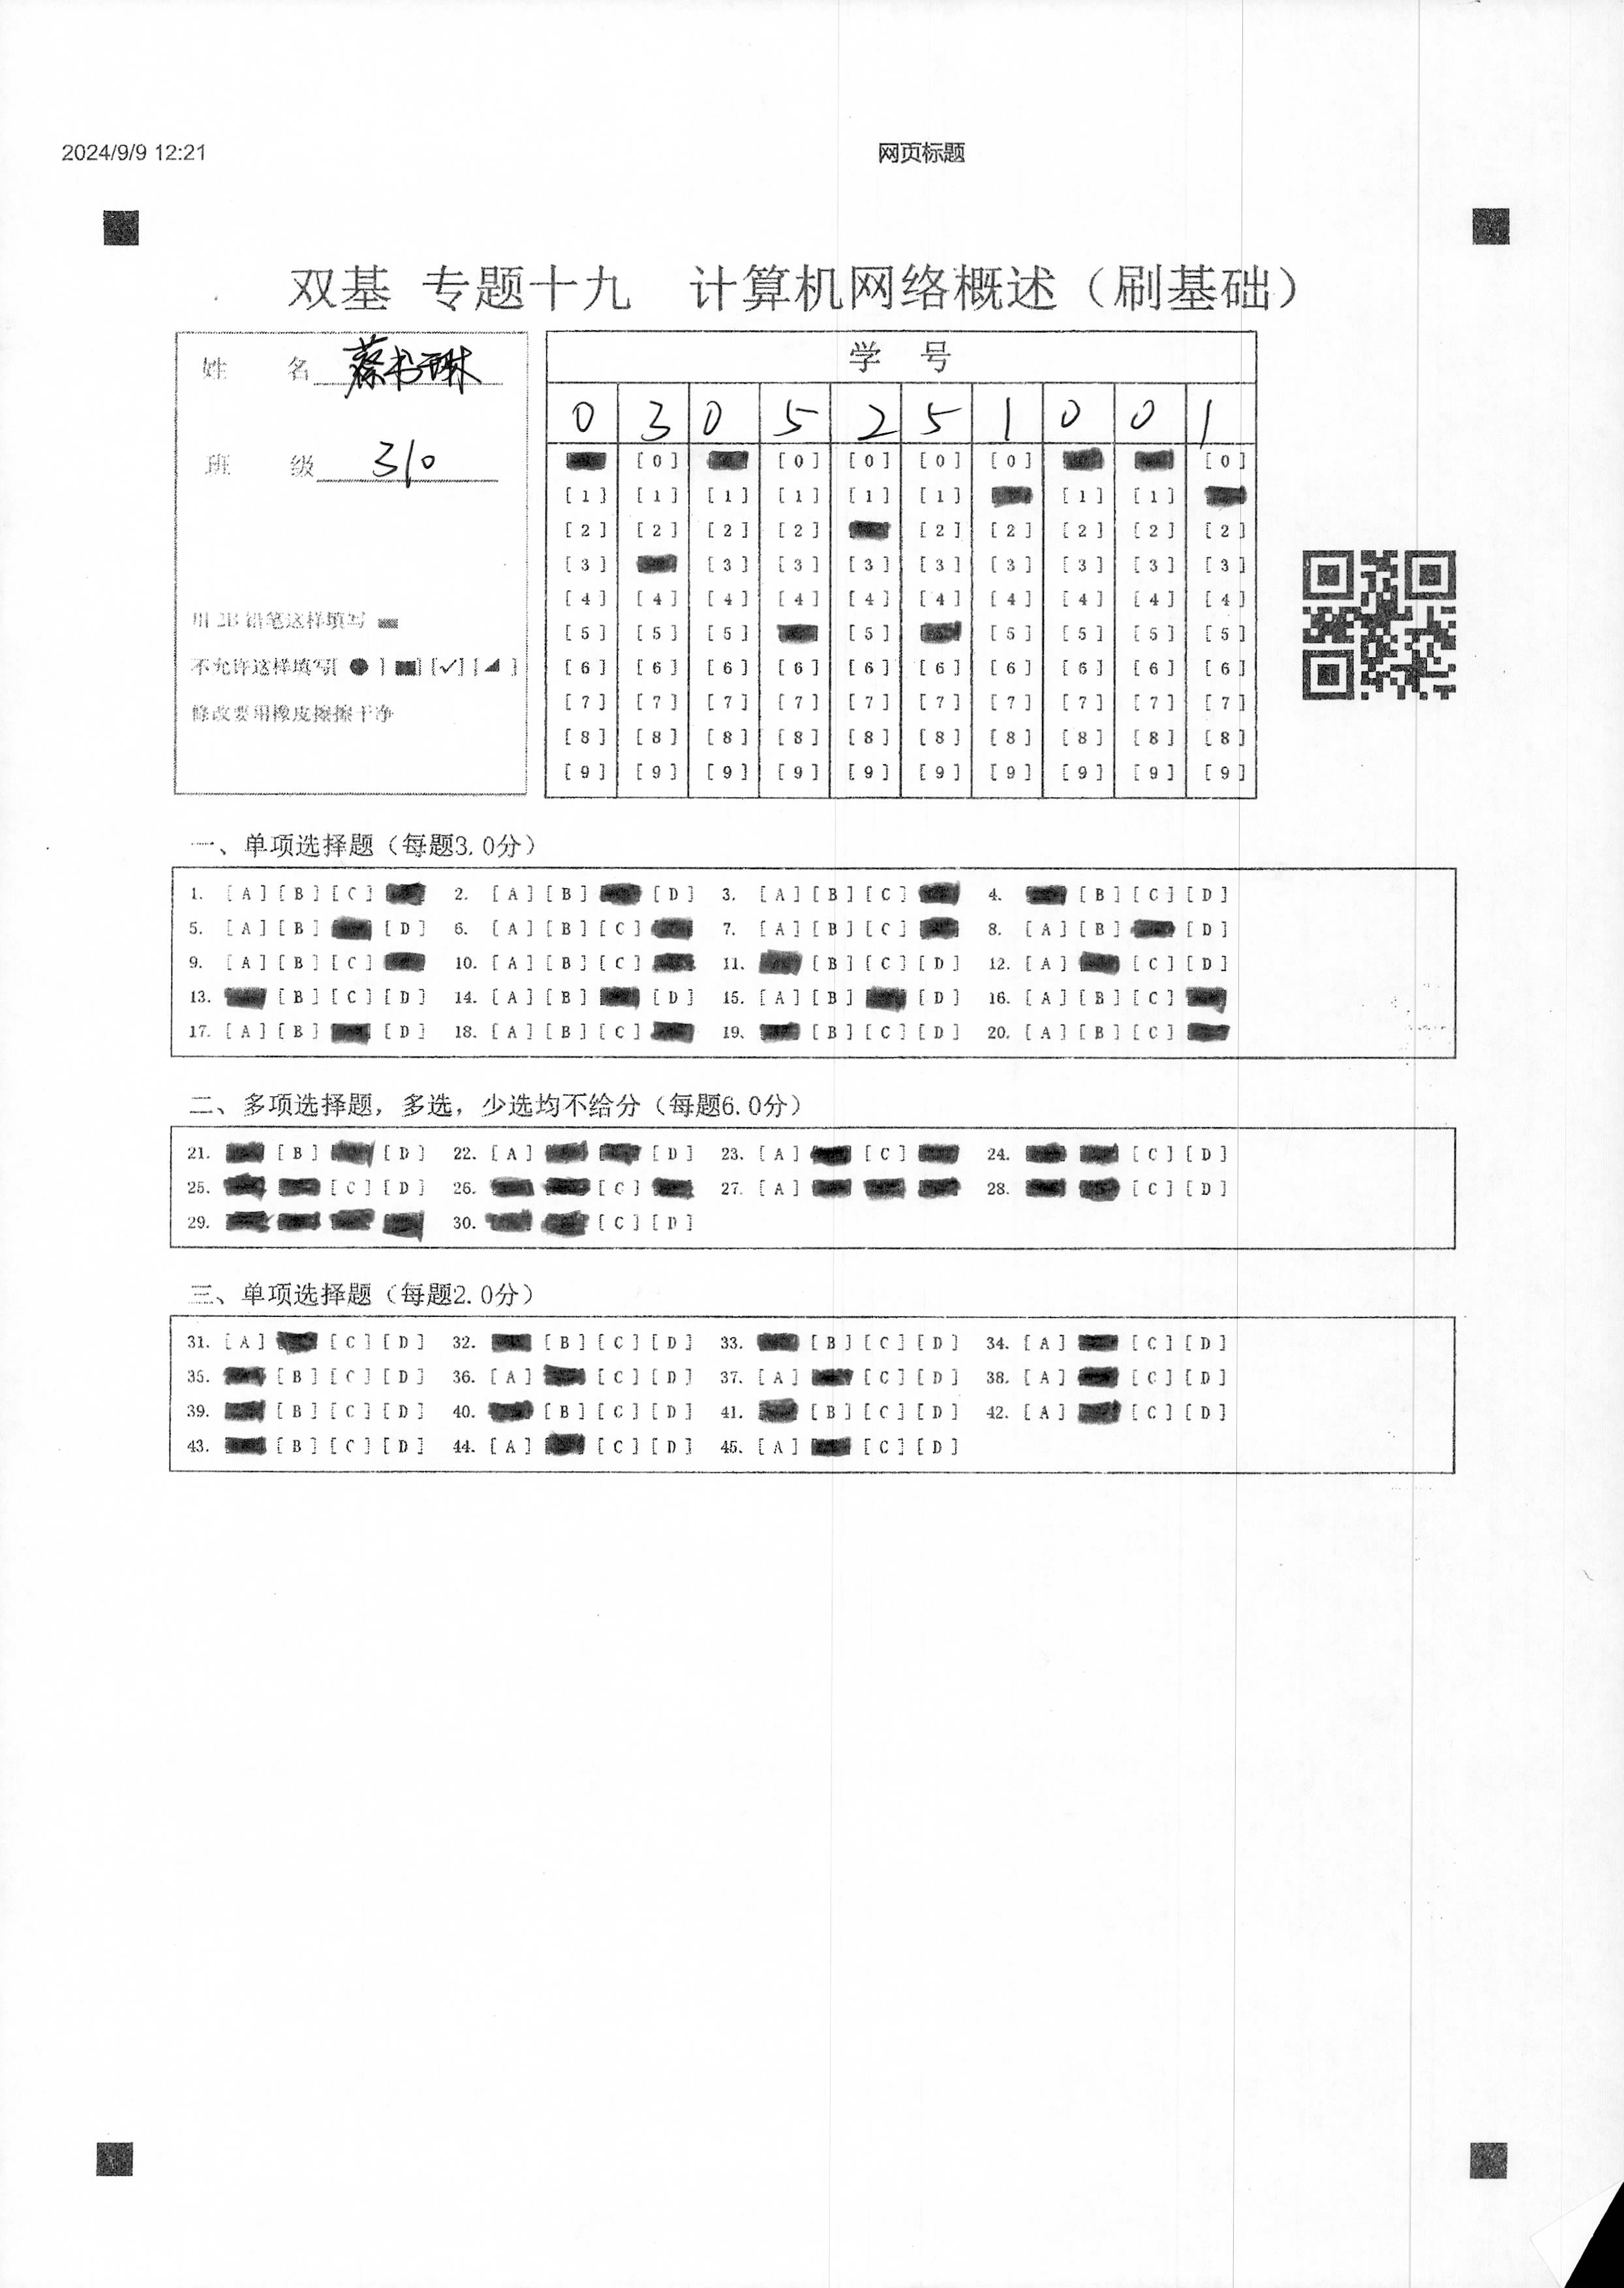 2024/9/9 12:21 网页标题
双基 专题十九 计算机网络概述（刷基础）
姓 名
班 级 310
用 2B 铅笔这样填写
不允许这样填写[ ● ] [■] [✓] [◢ ]
修改要用橡皮擦擦干净
学 号
0 3 0 5 2 5 1 0 0 1
[0] [0] [0] [0] [0] [0]
[1] [1] [1] [1] [1] [1] [1] [1]
[2] [2] [2] [2] [2] [2] [2] [2] [2]
[3] [3] [3] [3] [3] [3] [3] [3] [3]
[4] [4] [4] [4] [4] [4] [4] [4] [4] [4]
[5] [5] [5] [5] [5] [5] [5] [5]
[6] [6] [6] [6] [6] [6] [6] [6] [6] [6]
[7] [7] [7] [7] [7] [7] [7] [7] [7] [7]
[8] [8] [8] [8] [8] [8] [8] [8] [8] [8]
[9] [9] [9] [9] [9] [9] [9] [9] [9] [9]
一、单项选择题（每题3.0分）
1. [A] [B] [C] 2. [A] [B] [D] 3. [A] [B] [C] 4. [B] [C] [D]
5. [A] [B] [D] 6. [A] [B] [C] 7. [A] [B] [C] 8. [A] [B] [D]
9. [A] [B] [C] 10. [A] [B] [C] 11. [B] [C] [D] 12. [A] [C] [D]
13. [B] [C] [D] 14. [A] [B] [D] 15. [A] [B] [D] 16. [A] [B] [C]
17. [A] [B] [D] 18. [A] [B] [C] 19. [B] [C] [D] 20. [A] [B] [C]
二、多项选择题，多选，少选均不给分（每题6.0分）
21. [B] [D] 22. [A] [D] 23. [A] [C] 24. [C] [D]
25. [C] [D] 26. [C] 27. [A] 28. [C] [D]
29. 30. [C] [D]
三、单项选择题（每题2.0分）
31. [A] [C] [D] 32. [B] [C] [D] 33. [B] [C] [D] 34. [A] [C] [D]
35. [B] [C] [D] 36. [A] [C] [D] 37. [A] [C] [D] 38. [A] [C] [D]
39. [B] [C] [D] 40. [B] [C] [D] 41. [B] [C] [D] 42. [A] [C] [D]
43. [B] [C] [D] 44. [A] [C] [D] 45. [A] [C] [D]